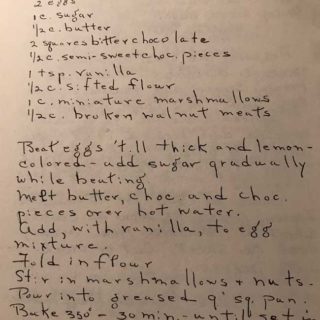 2 eggs
1 c. sugar
1/2 c. butter
2 squares bitter chocolate
1/2 c. semi-sweet choc. pieces
1 tsp. vanilla
1/2 c. sifted flour
1 c. miniature marshmallows
1/2 c. broken walnut meats
Beat eggs 'till thick and lemon-
colored - add sugar gradually
while beating.
Melt butter, choc. and choc.
pieces over hot water.
Add, with vanilla, to egg
mixture.
Fold in flour
Stir in marshmallows + nuts.
Pour into greased 9" sq. pan.
Bake 350° - 30 min. - until set in